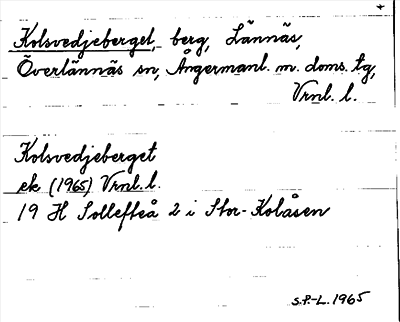 Kolsvedjeberget, berg, Lännäs,
Överlännäs sn, Ångermanl. m. doms. tg,
Vrnl. l.
Kolsvedjeberget
ek (1965) Vrnl. l.
19 H Sollefteå 2 i Stor-Kolåsen
S.P.-L. 1965